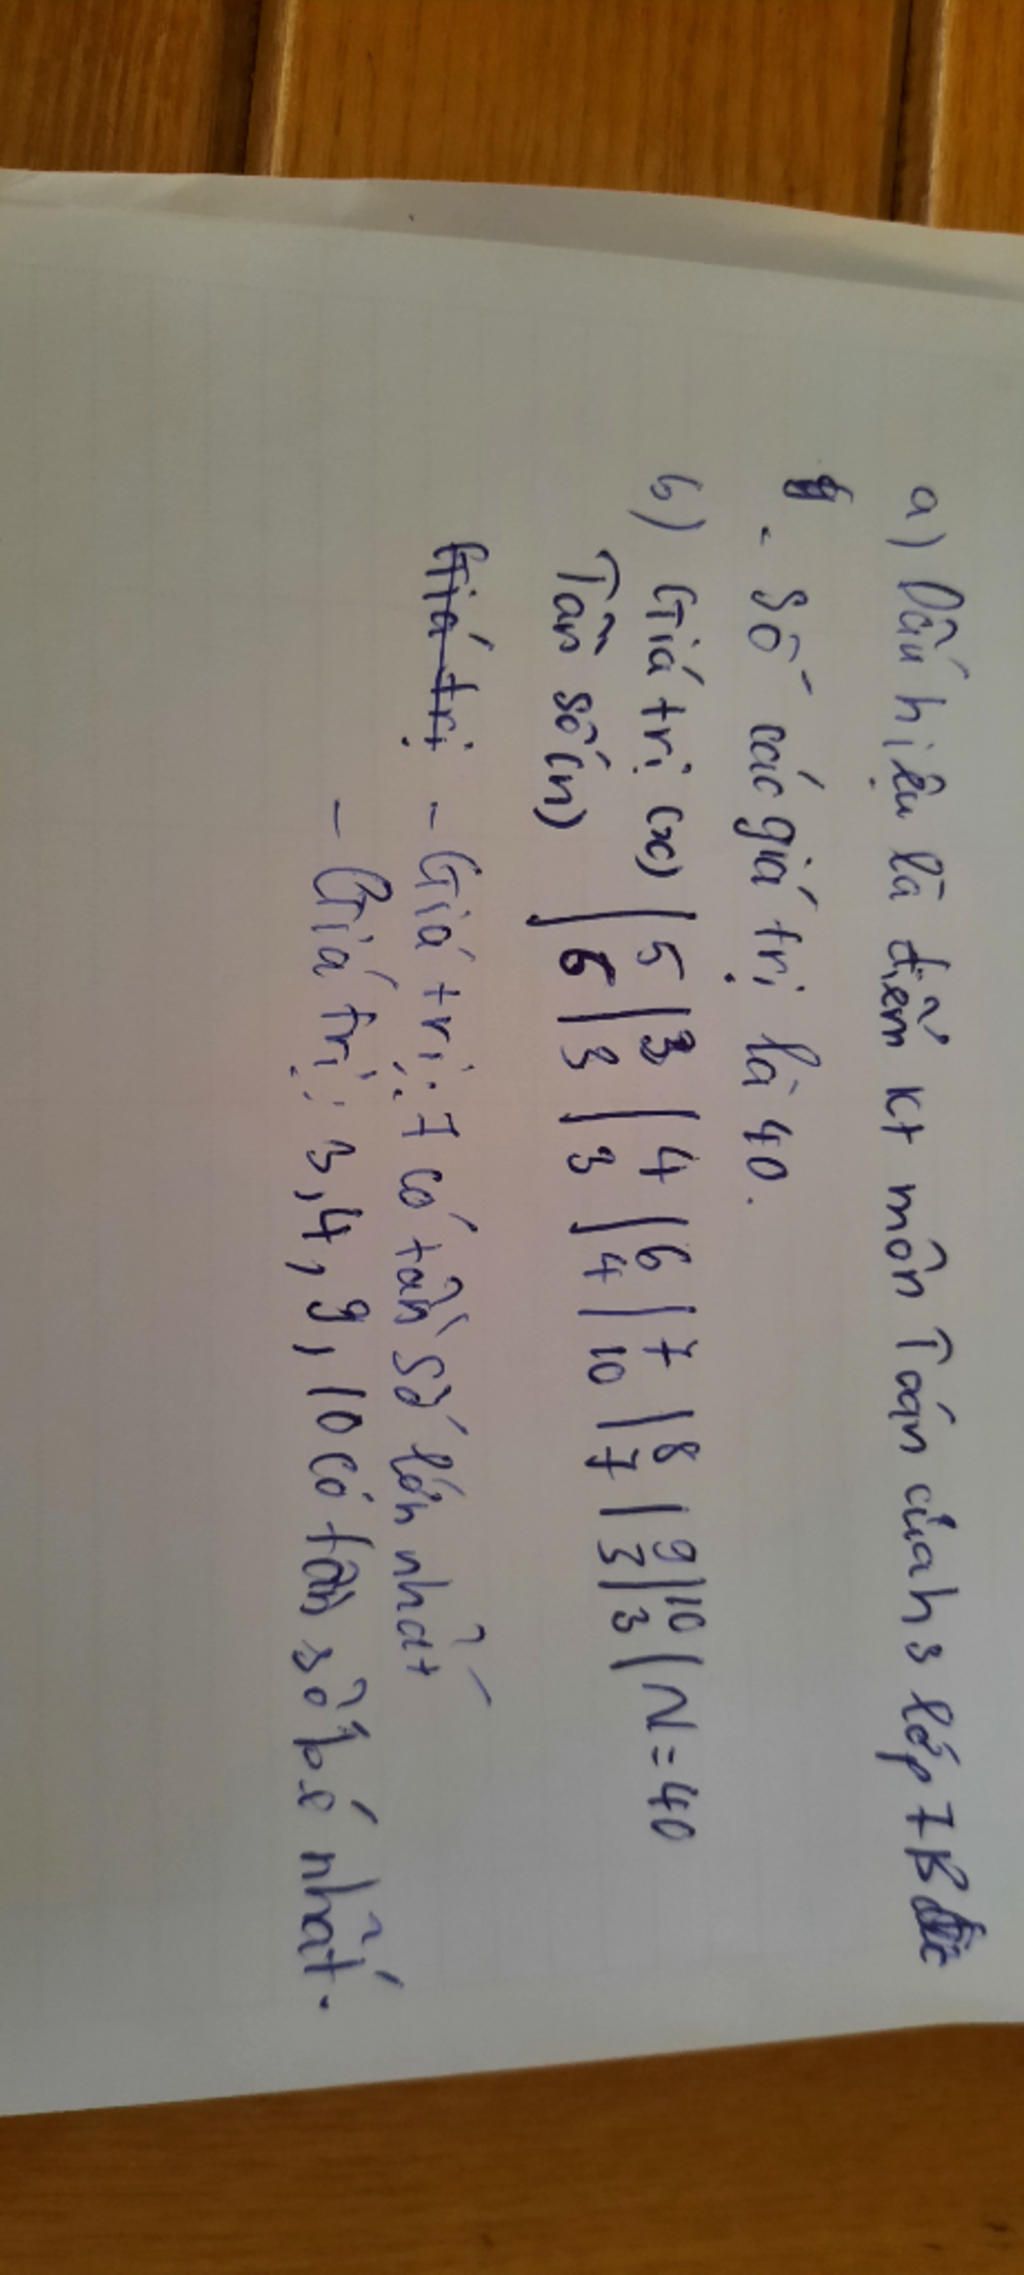 a) Dấu hiệu là điểm kt môn Toán của hs lớp 7B
- Số các giá trị là 40.
b) Giá trị (x) | 5 | 3 | 4 | 6 | 7 | 8 | 9 | 10 | N = 40
Tần số (n) | 6 | 3 | 3 | 4 | 10 | 7 | 3 | 3 |
Giá trị - Giá trị: 7 có tần số lớn nhất
- Giá trị: 3, 4, 9, 10 có tần số bé nhất.